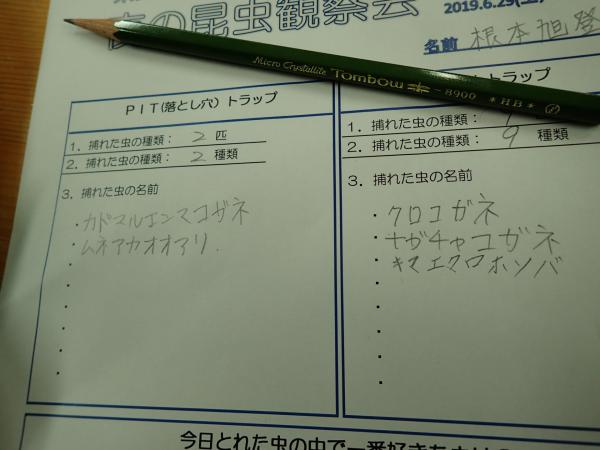 夜の昆虫観察会
2019.6.29(土)
名前 根本旭登
Micro Crystallite Tombow 8900 *HB*
PIT(落とし穴)トラップ
トラップ
1．捕れた虫の種類： 2 匹
2．捕れた虫の種類： 2 種類
3．捕れた虫の名前
・カドマルエンマコガネ
・ムネアカオオアリ．
1．捕れた虫の種類：
2．捕れた虫の種類： 9 種類
3．捕れた虫の名前
・クロコガネ
・ナガチャコガネ
・キマエクロホソバ
今日とれた虫の中で一番好きな